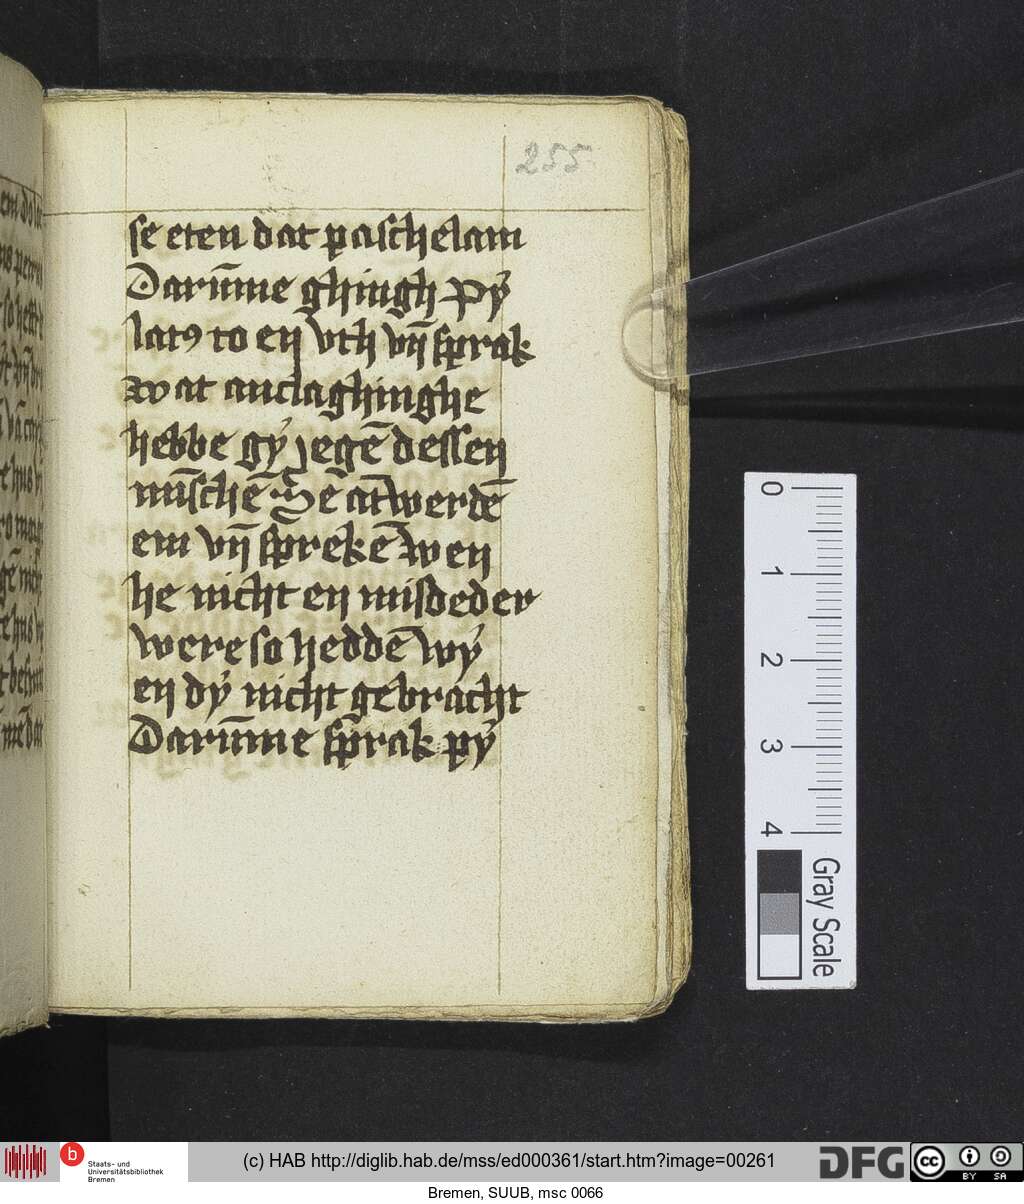 255
se eten dat paschelam
Darūme ghingh Py
latꝰ to en vth vn̄ sprak
wat anclaghinghe
hebbe gẏ jegē dessen
mīschē Se āt werdē
em vn̄ sprekē wen
he nicht en misdeder
were so heddē wẏ
en dẏ nicht gebracht
Darūme sprak pẏ
0
1
2
3
4
Gray Scale
b
Staats- und
Universitätsbibliothek
Bremen
(c) HAB http://diglib.hab.de/mss/ed000361/start.htm?image=00261
DFG
cc
BY SA
Bremen, SUUB, msc 0066